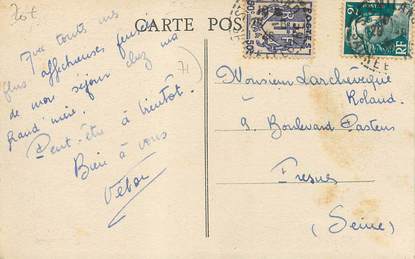 20f
CARTE POS
Que toutes mes
plus affectueuses pensées
de mon séjour chez ma
Grand'mère.
Peut-être à bientôt.
Bien à vous
71
Monsieur Larchevêque
Roland.
9. Boulevard Pasteur
Fresnes
(Seine)
2